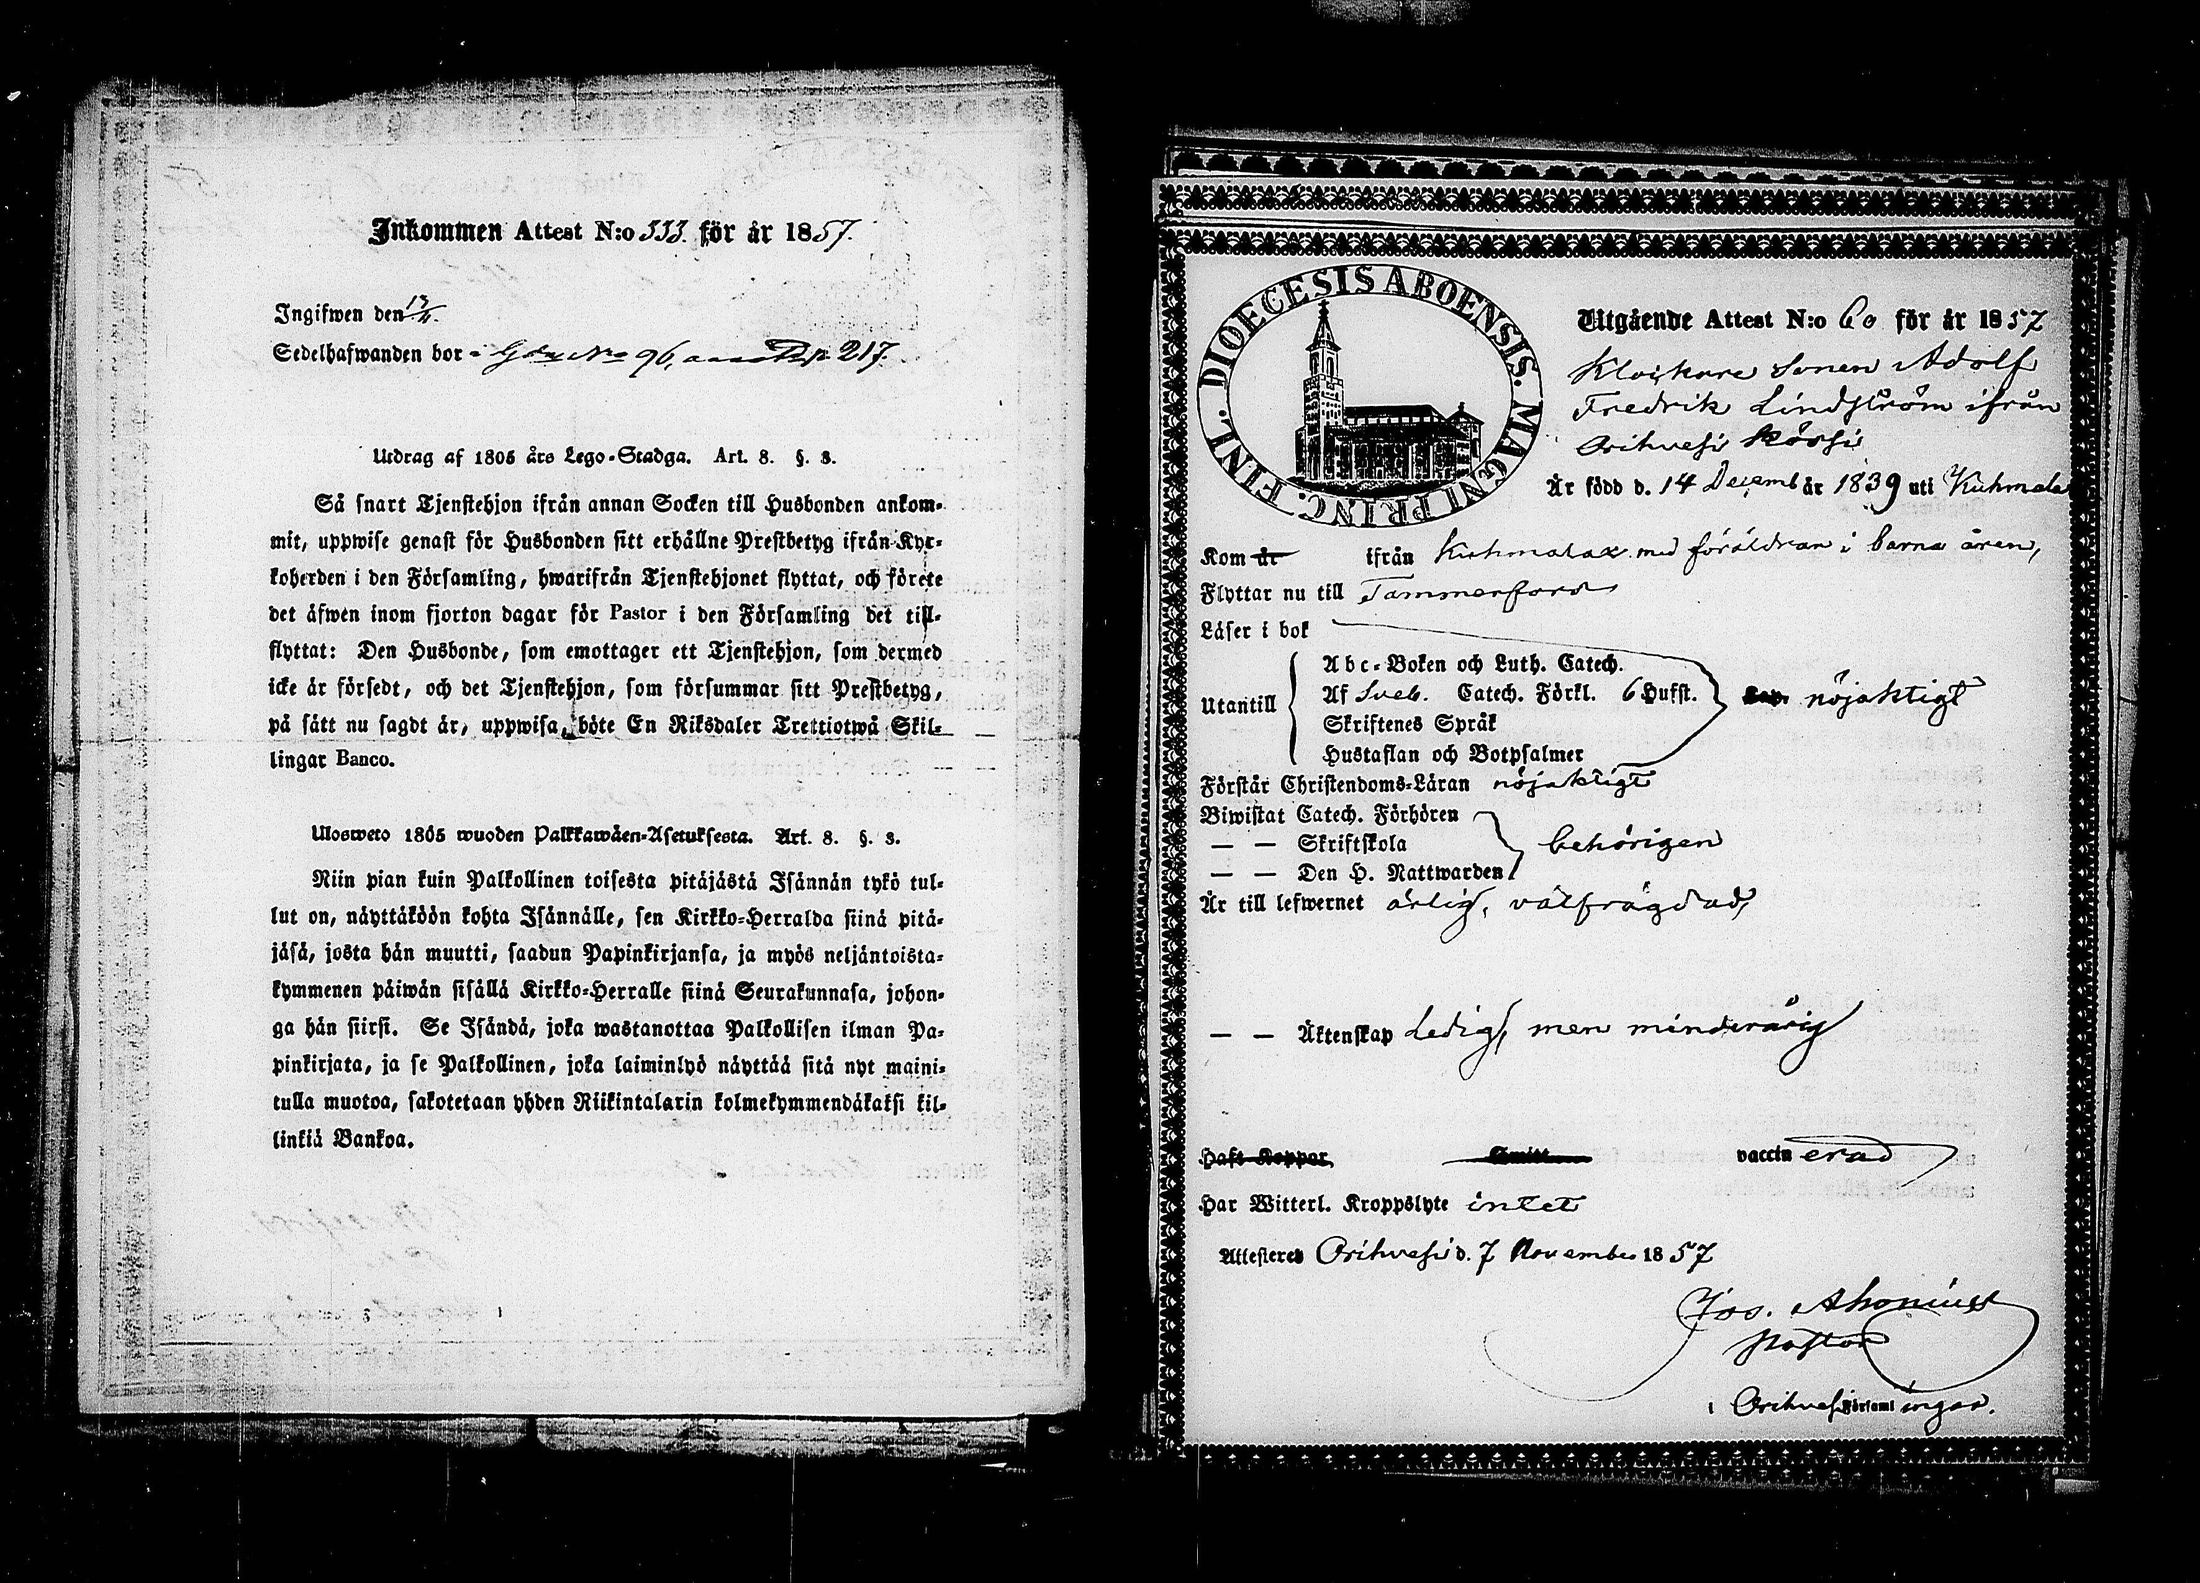 Inkommen Attest N:o 333. för år 1857.
Ingifwen den 13/11.
Sedelhafwanden bor i Gården No 96, Pag. 217.
Utdrag af 1805 års Lego-Stadga. Art. 8. §. 3.
Så snart Tjenstehjon ifrån annan Socken till Husbonden ankom-
mit, uppwise genast för Husbonden sitt erhållne Prestbetyg ifrån Kyr-
koherden i den Församling, hwarifrån Tjenstehjonet flyttat, och förete
det äfwen inom fjorton dagar för Pastor i den Församling det till-
flyttat: Den Husbonde, som emottager ett Tjenstehjon, som dermed
icke är försedt, och det Tjenstehjon, som försummar sitt Prestbetyg,
på sätt nu sagdt är, uppwisa, böte En Riksdaler Trettiotwå Skil-
lingar Banco.
Ulosweto 1805 wuoden Palkkawäen-Asetuksesta. Art. 8. §. 3.
Niin pian kuin Palkollinen toisesta pitäjästä Isännän tykö tul-
lut on, näyttäköön kohta Isännälle, sen Kirkko-Herralda siinä pitä-
jäsä, josta hän muutti, saadun Papinkirjansa, ja myös neljäntoista-
kymmenen päiwän sisällä Kirkko-Herralle siinä Seurakunnasa, johon-
ga hän siirsi. Se Isändä, joka wastanottaa Palkollisen ilman Pa-
pinkirjata, ja se Palkollinen, joka laiminlyö näyttää sitä nyt maini-
tulla muotoa, sakotetaan yhden Riikintalarin kolmekymmendäkaksi kil-
linkiä Bankoa.
FINL. DIOECESIS ABOENSIS. MAGNI PRINC.
Utgående Attest N:o 60 för år 1857
Klockare Sonen Adolf
Fredrik Lindström ifrån
Orihvesi
Är född d. 14 Decemb år 1839 uti Kuhmala
Kom år ifrån Kuhmalax med föräldran i barna åren,
Flyttar nu till Tammerfors
Läser i bok
Utantill
Abc-Boken och Luth. Catech.
Af Sveb. Catech. Förkl. 6 Hufst. Cap. nöjaktigt
Skriftenes Språk
Hustaflan och Botpsalmer
Förstår Christendoms-Läran nöjaktigt
Biwistat Catech. Förhören
— — Skriftskola behörigen
— — Den H. Nattwarden
Är till lefwernet ärlig, välfrägdad,
— — Äktenskap Ledig, men minderårig
Haft Koppor Smitt vaccin erad
Har Witterl. Kroppslyte intet
Attesteres Orihvesi d. 7 November 1857
Jos. Ahonius
Pastor
i Orihvesi Församl ingar.